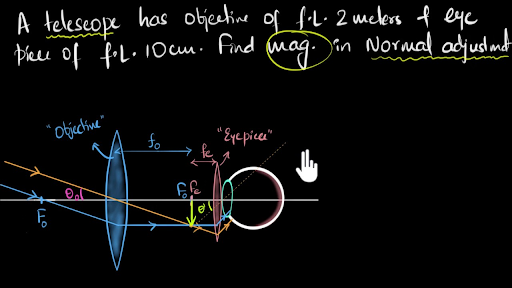 A telescope has objective of f.L. 2 meters & eye
piece of f.L. 10cm. Find mag. in Normal adjustmt
"Objective"
"Eyepiece"
fo
fe
θo
Fo
Fo fe
θ'